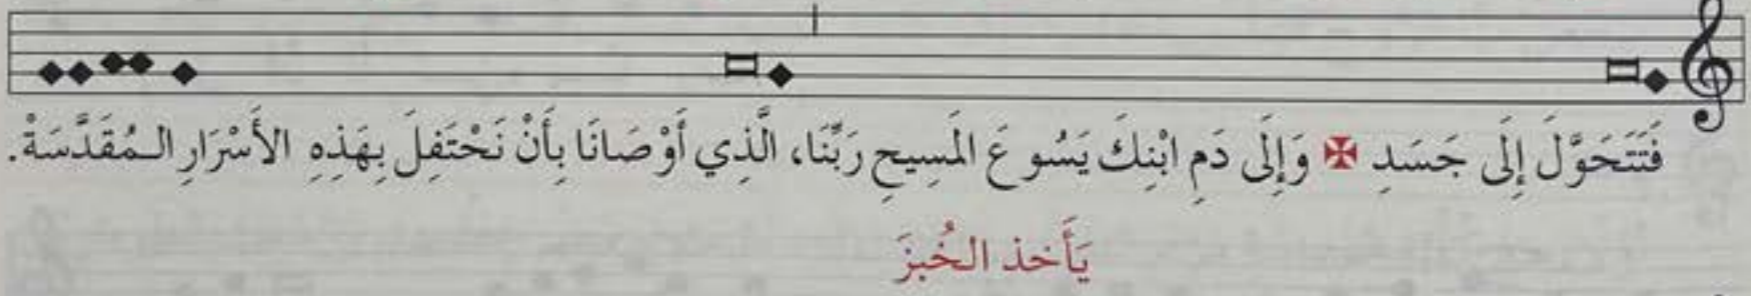 فَتَتَحَوَّلَ إِلَى جَسَدِ ✠ وَإِلَى دَمِ ابْنِكَ يَسُوعَ المَسِيحِ رَبِّنَا، الَّذِي أَوْصَانَا بِأَنْ نَحْتَفِلَ بِهَذِهِ الأَسْرَارِ الـمُقَدَّسَةْ.
يَأَخذ الخُبزَ